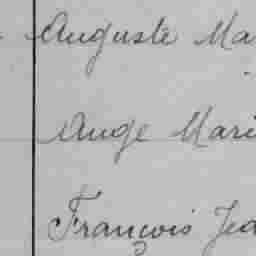 Auguste Ma
Ange Mari
François Jea